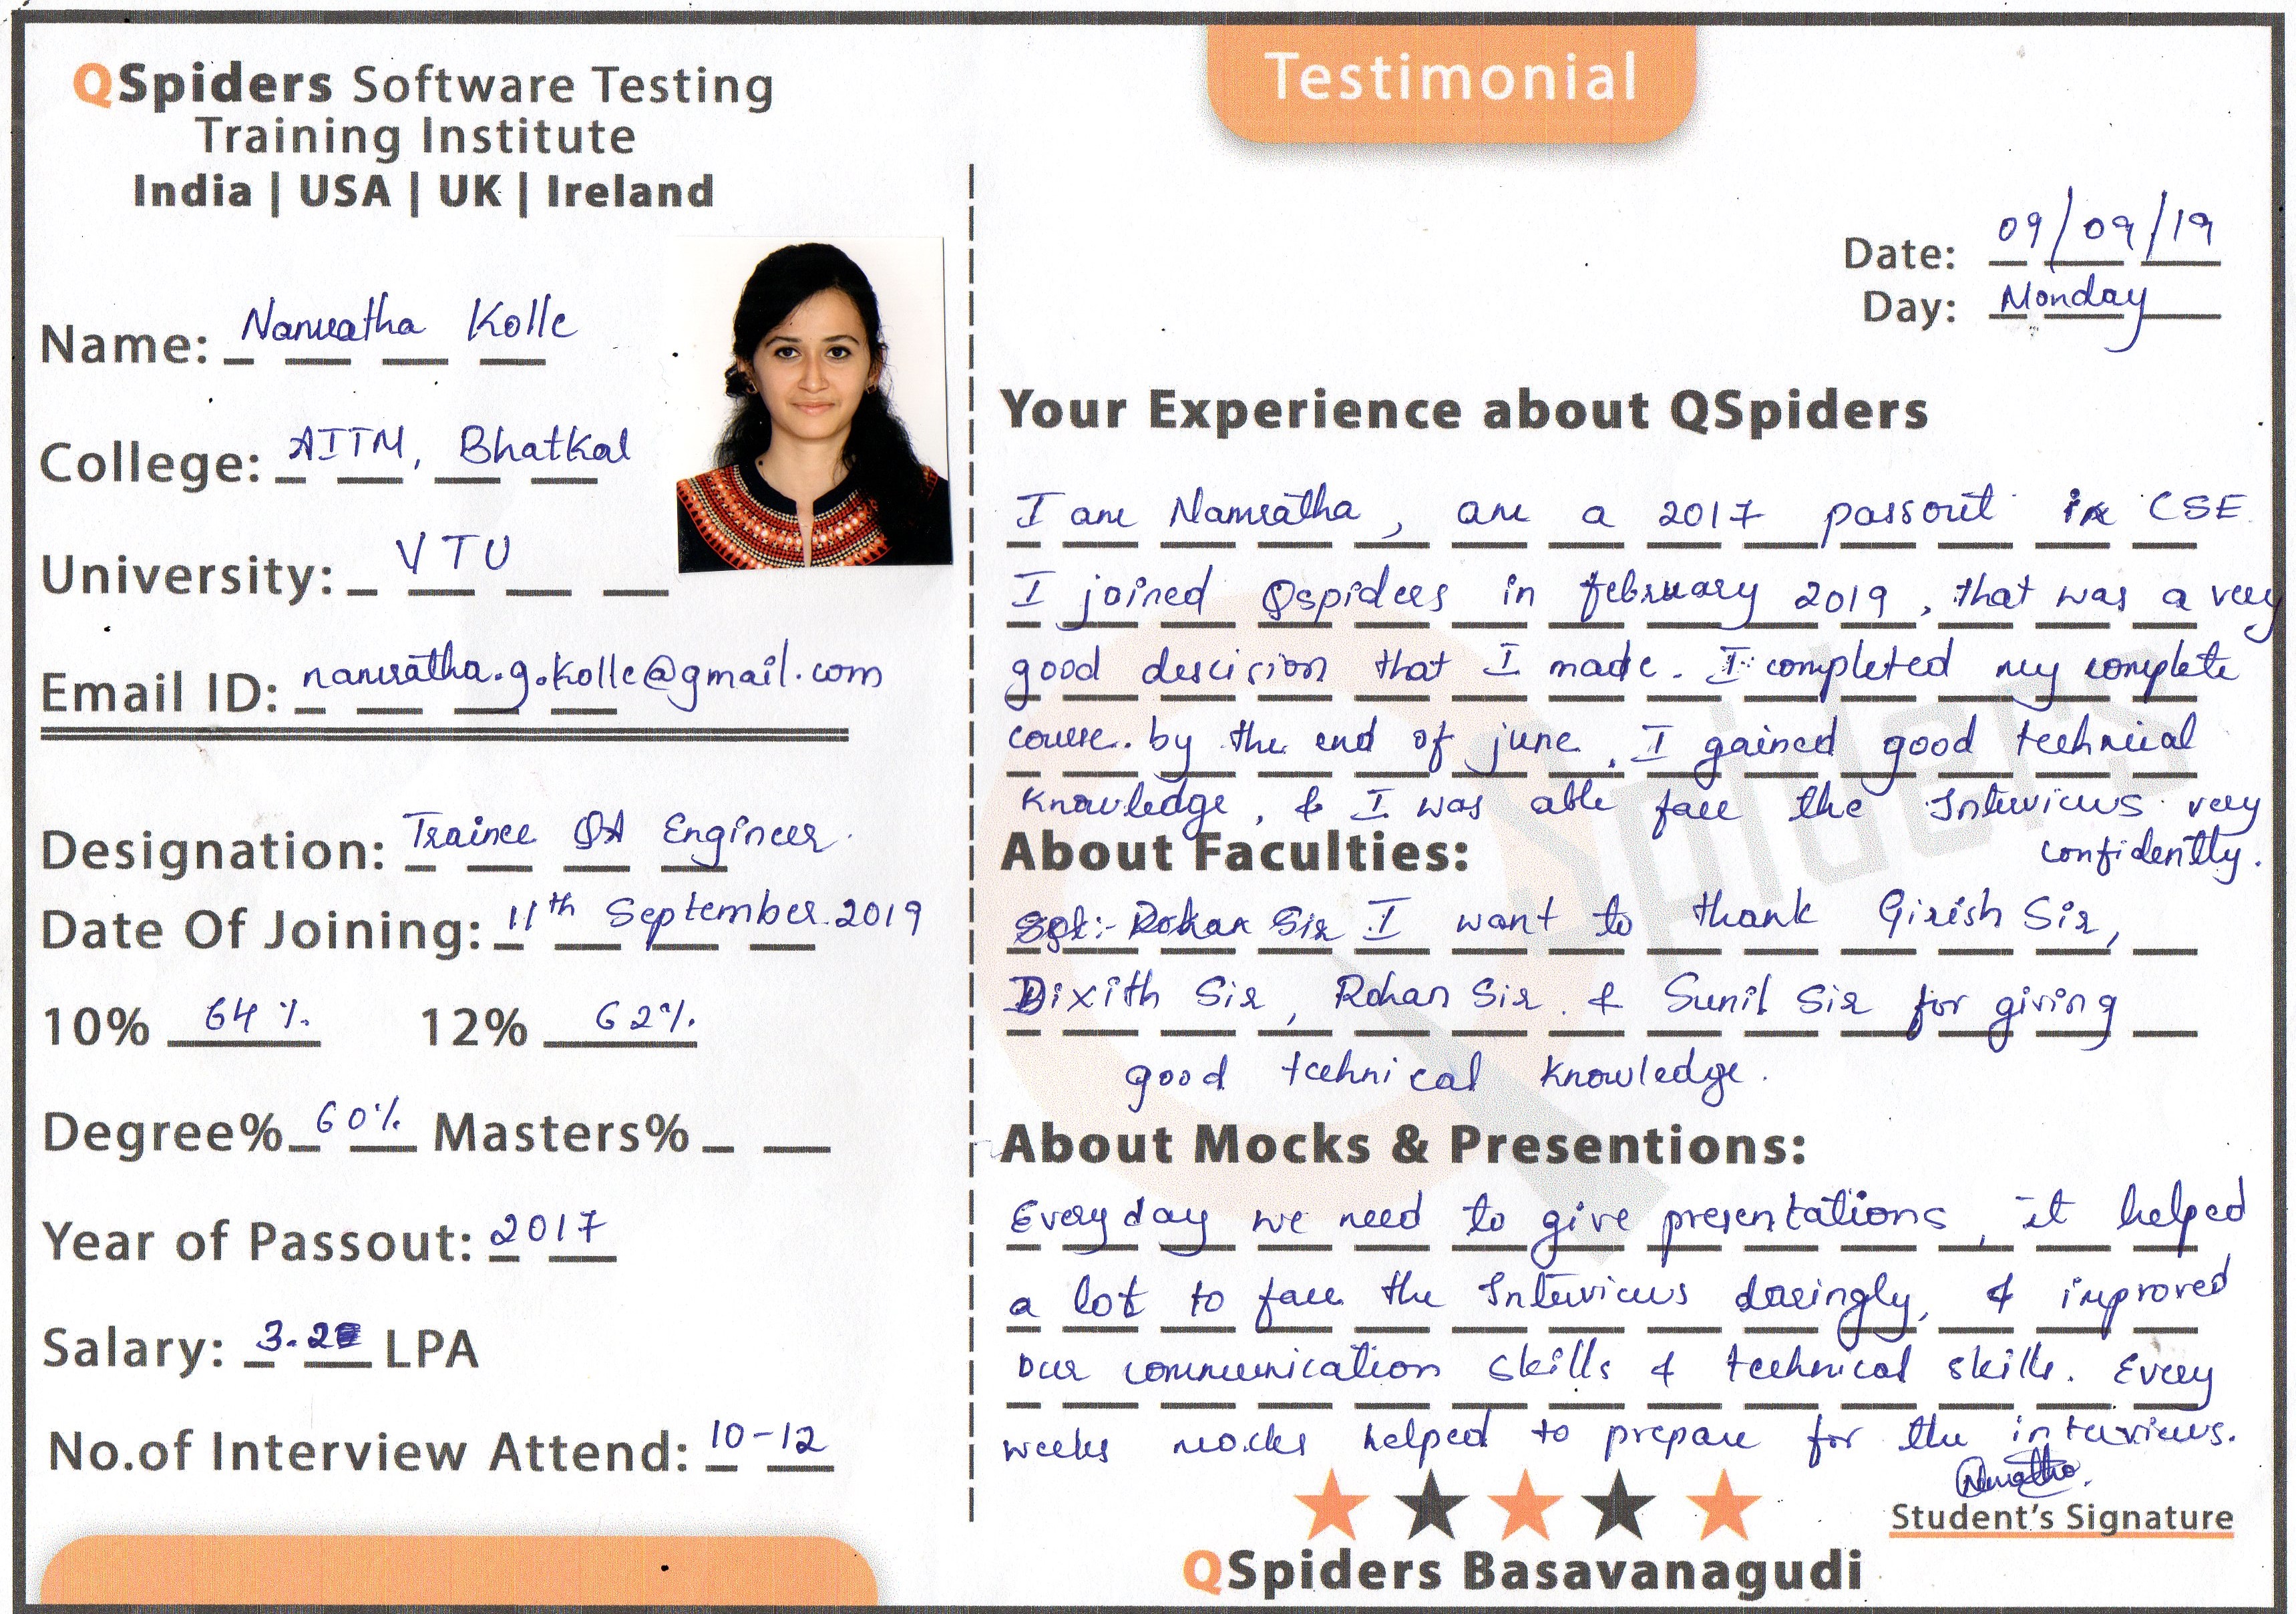 QSpiders Software Testing
Training Institute
India | USA | UK | Ireland
Name: Namratha Kolle
College: AITM, Bhatkal
University: VTU
Email ID: namratha.g.kolle@gmail.com
Designation: Trainee QA Engineer.
Date Of Joining: 11th September 2019
10% 64% 12% 62%
Degree% 60% Masters%
Year of Passout: 2017
Salary: 3.2 LPA
No.of Interview Attend: 10-12
Testimonial
Date: 09/09/19
Day: Monday
Your Experience about QSpiders
I am Namratha, am a 2017 passout in CSE.
I joined Qspiders in february 2019, that was a very
good descision that I made. I completed my complete
course. by the end of june. I gained good technical
knowledge, & I was able face the Interviews very
confidently.
About Faculties:
Rohan Sir I want to thank Girish Sir,
Dixith Sir, Rohan Sir. & Sunil Sir for giving
good technical knowledge.
About Mocks & Presentions:
Everyday we need to give presentations, it helped
a lot to face the Interviews daringly, & improved
our communication skills & technical skills. Every
weeks mocks helped to prepare for the interviews.
Namratha.
Student's Signature
QSpiders Basavanagudi
QSpiders